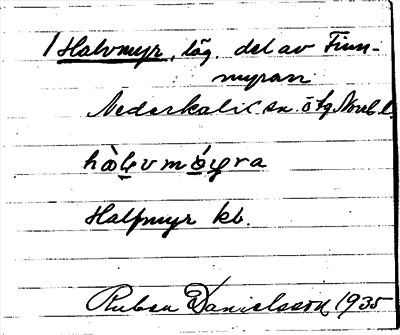 1 Halvmyr, läg. del av Finn-
myran
Nederkalix sn. ö tg Norrb. l.
hàl̥vmɷ́ɩ̯ra
Halfmyr kb.
Ruben Danielsson 1935